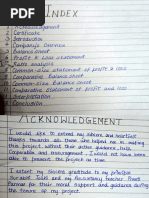 INDEX
1. Acknowledgement
2. Certificate
3. Introduction
4. Company's Overview
5. Balance sheet
6. Profit & Loss statement
7. Ratio analysis
8. Common-size statement of profit & loss
9. Comparative Balance sheet
10. Comparative statement of profit and loss
11. Interpretation
12. Conclusion
ACKNOWLEDGEMENT
I would like to extend my sincere and heartfelt
thanks towards all those who helped me in making
this project. Without their active guidance, help,
Cooperation and encouragement, I would not have been
able to present the project on time.
I extend my sincere gratitude to my principal
and my Accountancy teacher,
for their moral support and guidance during
the tenure of my project.